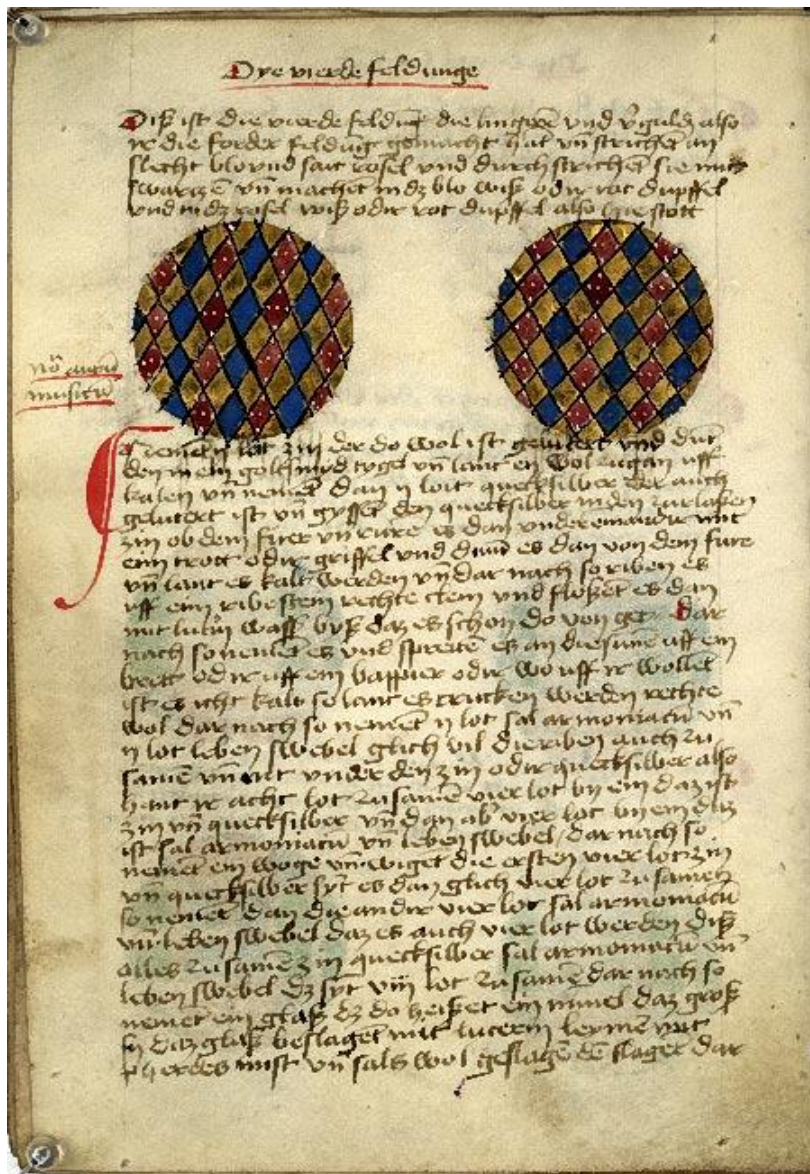 Dye vierde feldunge
Diß ist die vierde feldūg die linyeren vnd v̄guldz also
ir die forder feldūg gemacht hāt vn̄ strichēt an
slecht blo vnd satt rosel vnd durchstrichēt sie mit
swartzē vn̄ machēt in dz blo wiß odir rot dupffel
vnd in dz rosel wiß odir rot dupffel also hie stott
nō aurū
musicū
nemēt ij lot zin der do wol ist gelutert vnd dūt
den in ein goltsmyd tygel vn̄ lant en wol zugan uff
kalen vn̄ nemēt dan ij loit quecksilber der auch
gelutert ist vn̄ gyssēt den quecksilber in den zurlaßen
zin ob dem fuer vn̄ rurē es dan vndereinandir mit
eim trott odir griffel vnd dūnt es dan von dem fure
vn̄ lant es kalt werden vn̄ dar nach so riben es
uff eim ribestein rechte clein vnd floßēt es dan
mit luttm̄ wass biß daz es schon do von get Dar
nach so nemēt es vnd spreitē es an die sune uff ein
brett odir uff ein bappier odir wo uff ir wollēt
ist es icht kalt so lant es trucken werden rechte
wol dar nach so nemēt ij lot sal armoniacū vn̄
ij lot leben swebel glich vil die riben auch zu
samē vn̄ mit vnder den zin odir quecksilber also
hant ir acht lot zusamē vier lot by ein daz ist
zin vn̄ quecksilber vn̄ dan ab' vier lot by ein daz
ist sal armoniacū vn̄ leben swebel / dar nach so
nemēt ein woge vn̄ wiget die ersten vier lot zin
vn̄ quecksilber syt es dan glich vier lot zu samen
so nemēt dan die andir vier lot sal armoniacū
vn̄ leben swebel daz es auch vier lot werden diß
alles zusamē zin quecksilber sal armoniacū vn̄
leben swebel dz syt viij lot zusamē dar nach so
nemet ein glaß dz do heißet ein daz groß
sy daz glaß beslaget mit luterm leymen mit
pherdes mist vn̄ sals wol geslagē dē slaget dar